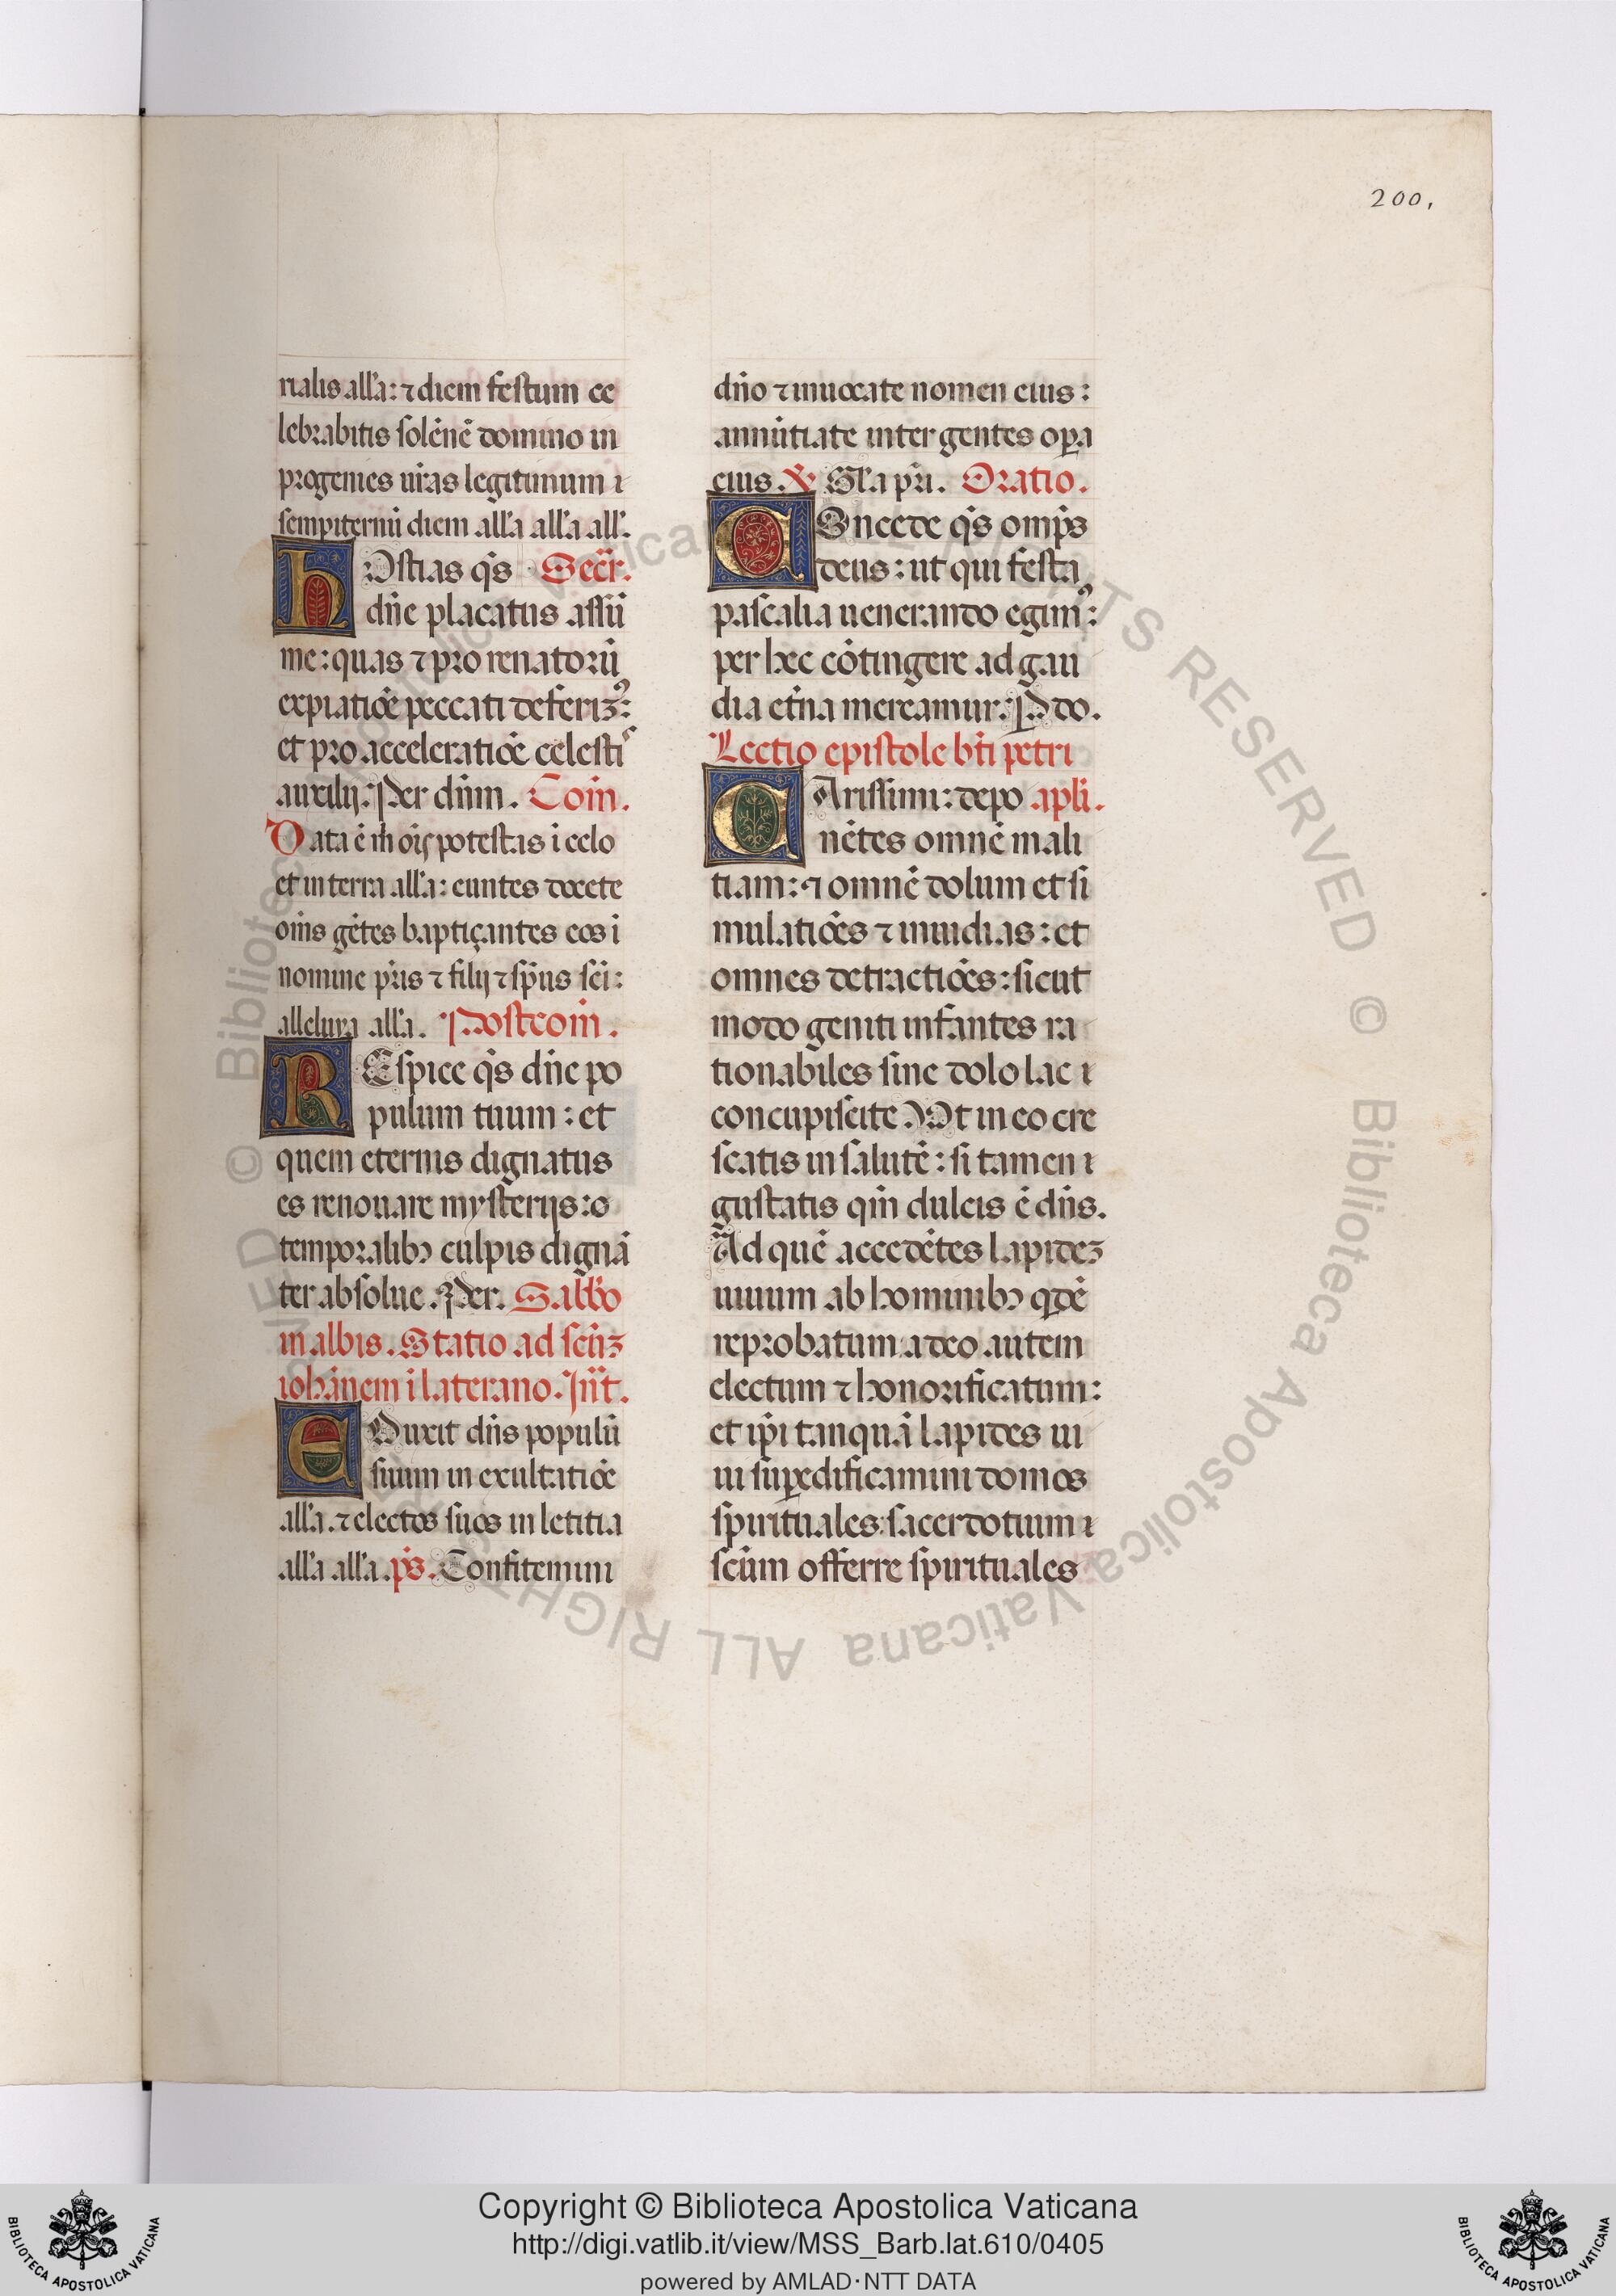 200.
rialis all'a: ⁊ diem festum ce
lebrabitis solēnē domino in
progenies ur̄as legitimum ı
sempiternū diem all'a all'a all'.
hOstias q̄s Secr̄.
dn̄e placatus assū
me: quas ⁊ pro renatorū
expiatiōe peccati deferimꝰ:
et pro acceleratiōe celesti
auxilij. Per dn̄m. Com̄.
Data ē m̄
potestas i celo
et in terra all'a: euntes docete
om̄s gētes baptiçantes eos i
nomine pr̄is ⁊ filij ⁊ sp̄us sci:
alleluya all'a. Postcom̄.
REspice q̄s dn̄e po
pulum tuum: et
quem eternis dignatus
es renouare mysterijs: o
temporalibꝫ culpis dignā
ter absolue. Per. Sabb̄o
in albis. Statio ad scm̄
iohānem i laterano. Int̄.
EDuxit dn̄s populū
suum in exultatiōe
all'a. ⁊ electos suos in letitia
all'a all'a. ps̄. Confitemini
dn̄o ⁊ inuocate nomen eius:
annūtiate inter gentes oꝑa
eius. ℣ Gl'a pr̄i. Oratio.
COncede q̄s omp̄s
deus: ut qui festa
pascalia uenerando egimꝰ:
per hec cōtingere ad gau
dia et̄na mereamur. P do.
Lectio epistole bt̄i petri
CArissimi: depo apl'i.
nētes omnē mali
tiam: ⁊ omnē dolum et si
mulatiōes ⁊ inuidias: et
omnes detractiōes: sicut
modo geniti infantes ra
tionabiles sine dolo lac ı
concupiscite. Ut in eo cre
scatis in salutē: si tamen ı
gustatis qm̄ dulcis ē dn̄s.
Ad quē accedētes lapideꝫ
uiuum ab hominibꝫ qdē
reprobatum a deo autem
electum ⁊ honorificatum:
et ip̄i tanquā lapides ui
ui suꝑedificamini domos
spirituales: sacerdotium ı
scm̄ offerre spirituales
Copyright © Biblioteca Apostolica Vaticana
http://digi.vatlib.it/view/MSS_Barb.lat.610/0405
powered by AMLAD·NTT DATA
BIBLIOTECA APOSTOLICA VATICANA
BIBLIOTECA APOSTOLICA VATICANA
© Biblioteca Apostolica Vaticana ALL RIGHTS RESERVED © Biblioteca Apostolica Vaticana ALL RIGHTS RESERVED